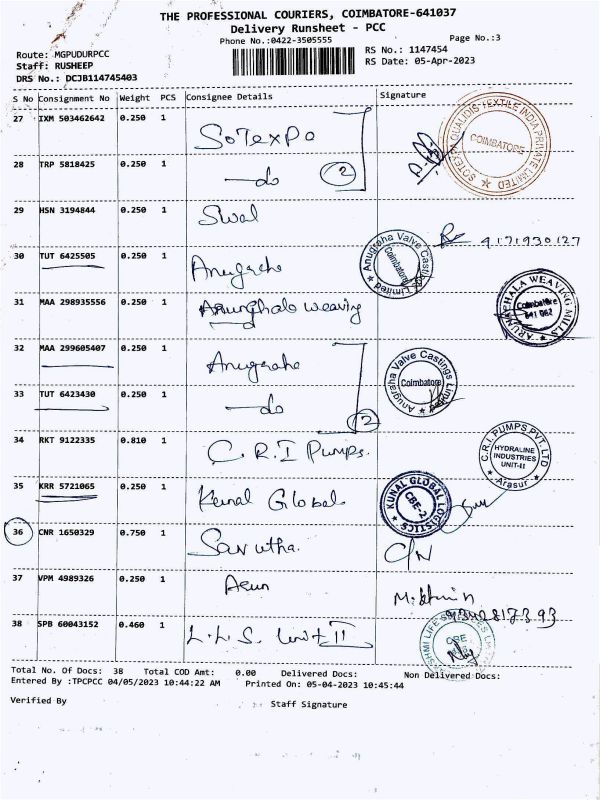 THE PROFESSIONAL COURIERS, COIMBATORE-641037
Delivery Runsheet - PCC
Phone No.:0422-3505555
Page No.:3
Route: MGPUDURPCC
Staff: RUSHEEP
DRS No.: DCJB114745403
RS No.: 1147454
RS Date: 05-Apr-2023
S No Consignment No Weight PCS Consignee Details Signature
27 IXM 503462642 0.250 1 SoTexpa
SOTEXPA QUALIDIS TEXTILE INDIA PRIVATE LIMITED COIMBATORE
28 TRP 5818425 0.250 1 do 2
29 HSN 3194844 0.250 1 Swal 9171930127
30 TUT 6425505 0.250 1
Anugraha Valve Castings Limited Coimbatore
31 MAA 298935556 0.250 1 weaving
ARUNACHALA WEAVING MILLS Coimbatore 641 062
32 MAA 299605407 0.250 1 Anugraha
33 TUT 6423430 0.250 1 do 2
Anugraha Valve Castings Limited Coimbatore
34 RKT 9122335 0.810 1 C.R.I Pumps.
C.R.I. PUMPS PVT. LTD HYDRALINE INDUSTRIES UNIT-II Arasur
35 KRR 5721065 0.250 1 Kunal Global
KUNAL GLOBAL LOGISTICS CBE-2
36 CNR 1650329 0.750 1 C/N
37 VPM 4989326 0.250 1 Arun
38 SPB 60043152 0.460 1 L.L.S. Unit II
CBE
Total No. Of Docs: 38 Total COD Amt: 0.00 Delivered Docs: Non Delivered Docs:
Entered By :TPCPCC 04/05/2023 10:44:22 AM Printed On: 05-04-2023 10:45:44
Verified By Staff Signature